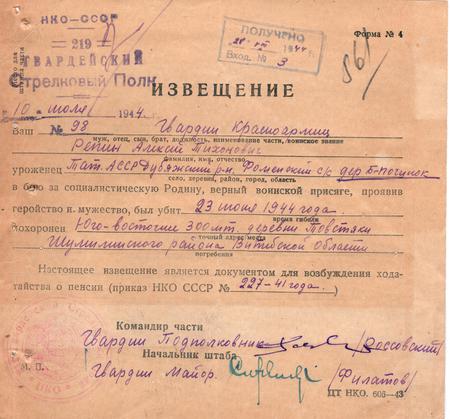 НКО-СССР
219
ГВАРДЕЙСКИЙ
Стрелковый Полк
ПОЛУЧЕНО
1944 г.
Вход. № 3
Форма № 4
561
ИЗВЕЩЕНИЕ
10 июля 1944 г.
Ваш № 98 Гвардии Красноармиец
муж, отец, сын, брат, должность, наименование части, воинское звание
Репин Алексей Тихонович
фамилия, имя, отчество
уроженец Тат. АССР Дубъязский р-н, Фоменский с/с дер Б-Починок
село, деревня, район, город, область
в бою за социалистическую Родину, верный воинской присяге, проявив
геройство и мужество, был убит 23 июня 1944 года
время гибели
Похоронен Юго-восточнее 300 мт. деревни Товстяки
с точный адрес места
Шумилинского района Витебской области
погребения
Настоящее извещение является документом для возбуждения хода-
тайства о пенсии (приказ НКО СССР № 227-41 года.
Командир части
Гвардии Подполковник (Россовский)
Начальник штаба
М. П.
Гвардии Майор. (Филатов)
ЦТ НКО. 606—43